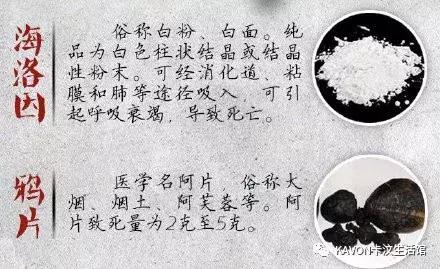 海洛因
俗称白粉、白面。纯
品为白色柱状结晶或结晶
性粉末。可经消化道、粘
膜和肺等途径吸入,可引
起呼吸衰竭,导致死亡。
鸦片
医学名阿片,俗称大
烟、烟土、阿芙蓉等。阿
片致死量为2克至5克。
KAVON卡汶生活馆